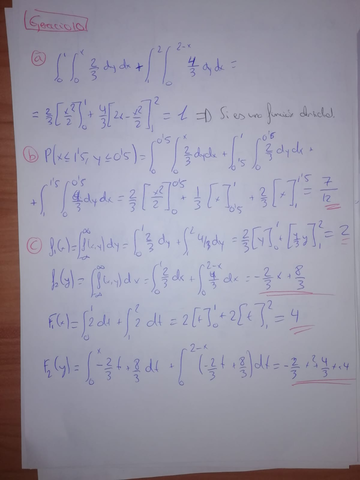 a) ∫₀¹ ∫₀ˣ 2/3 dy dx + ∫₁² ∫₀^(2-x) 4/3 dy dx =
= 2/3 [x²/2]₀¹ + 4/3 [2x - x²/2]₁² = 1 ⇒ Si es una función
b) P(x ≤ 1'5, y ≤ 0'5) = ∫₀^(0'5) ∫₀ˣ 2/3 dy dx + ∫_(0'5)¹ ∫₀^(0'5) 2/3 dy dx +
+ ∫₁^(1'5) ∫₀^(0'5) 4/3 dy dx = 2/3 [x²/2]₀^(0'5) + 1/3 [x]_(0'5)¹ + 2/3 [x]₁^(1'5) = 7/12
c) f₁(x) = ∫ f(x,y) dy = ∫₀¹ 2/3 dy + ∫₁² 4/3 dy = 2/3 [y]₀¹ + [4/3 y]₁² = 2
f₂(y) = ∫ f(x,y) dx = ∫₀¹ 2/3 dx + ∫₀^(2-x) 4/3 dx = -2/3 x + 8/3
F₁(x) = ∫₀¹ 2 dt + ∫₁² 2 dt = 2[t]₀¹ + 2[t]₁² = 4
F₂(y) = ∫₀ˣ -2/3 t + 8/3 dt + ∫₀^(2-x) (-2/3 t + 8/3) dt =